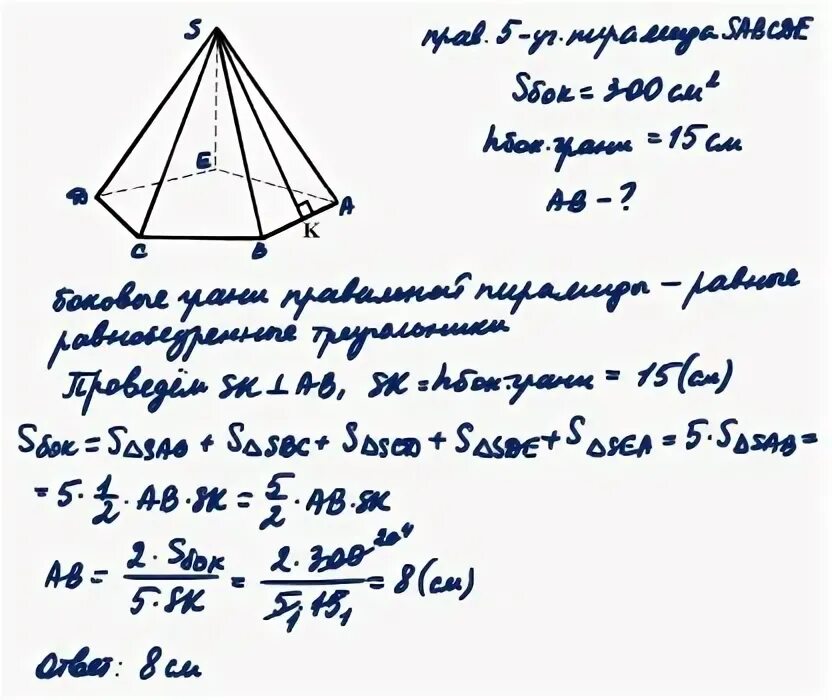 прав. 5-уг. пирамида SABCDE
Sбок = 300 см²
hбок.грани = 15 см
AB - ?
S
E
D
A
K
C
B
боковые грани правильной пирамиды – равные
равнобедренные треугольники
Проведём SK ⊥ AB, SK = hбок.грани = 15 (см)
Sбок = S△SAB + S△SBC + S△SCD + S△SDE + S△SEA = 5 · S△SAB =
= 5 · 1/2 · AB · SK = 5/2 · AB · SK
AB = 2 · Sбок / 5 · SK = 2 · 300 20 4 / 5 1 · 15 1 = 8 (см)
Ответ: 8 см